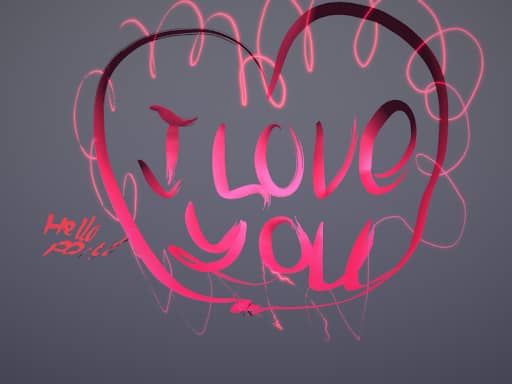 I LOVe
you
Hello